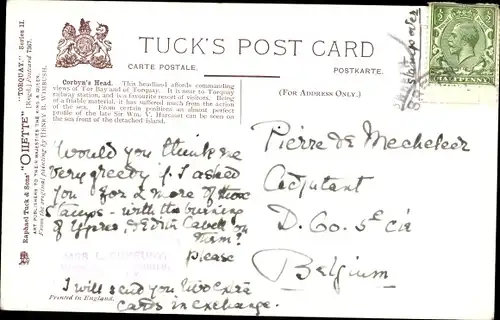 TUCK'S POST CARD
CARTE POSTALE.
POSTKARTE.
Raphael Tuck & Sons' "OILETTE" "TORQUAY." Series II.
[Regd.] Postcard 7367.
ART PUBLISHERS TO THEIR MAJESTIES THE KING & QUEEN.
From the original painting by HENRY B. WIMBUSH.
Corbyn's Head. This headland affords commanding
views of Tor Bay and of Torquay. It is near to Torquay
railway station, and is a favourite resort of visitors. Being
of a friable material, it has suffered much from the action
of the sea. From certain positions an almost perfect
profile of the late Sir Wm. V. Harcourt can be seen on
the sea front of the detached island.
(FOR ADDRESS ONLY.)
Would you think me
very greedy if I asked
you for 2 more of those
Stamps - with the burning
of Ypres, & Edith Cavell on
them?
please
I will send you two extra
cards in exchange.
Printed in England.
Pierre de Mecheleer
Adjutant
D. Co. 5e cie
Belgium